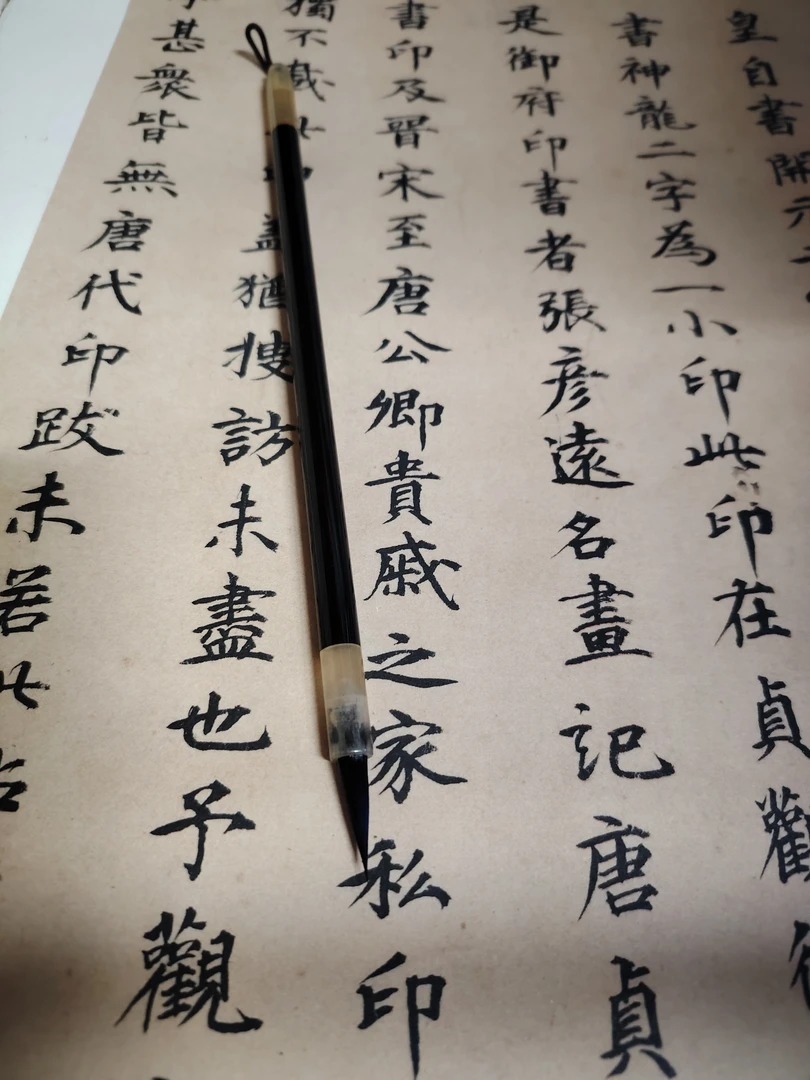 皇自書開元
書神龍二字為一小印此印在貞觀
是御府印書者張彥遠名畫記唐貞
書印及晉宋至唐公卿貴戚之家私印
獨不載此印蓋猶搜訪未盡也予觀
甚衆皆無唐代印跋未若此